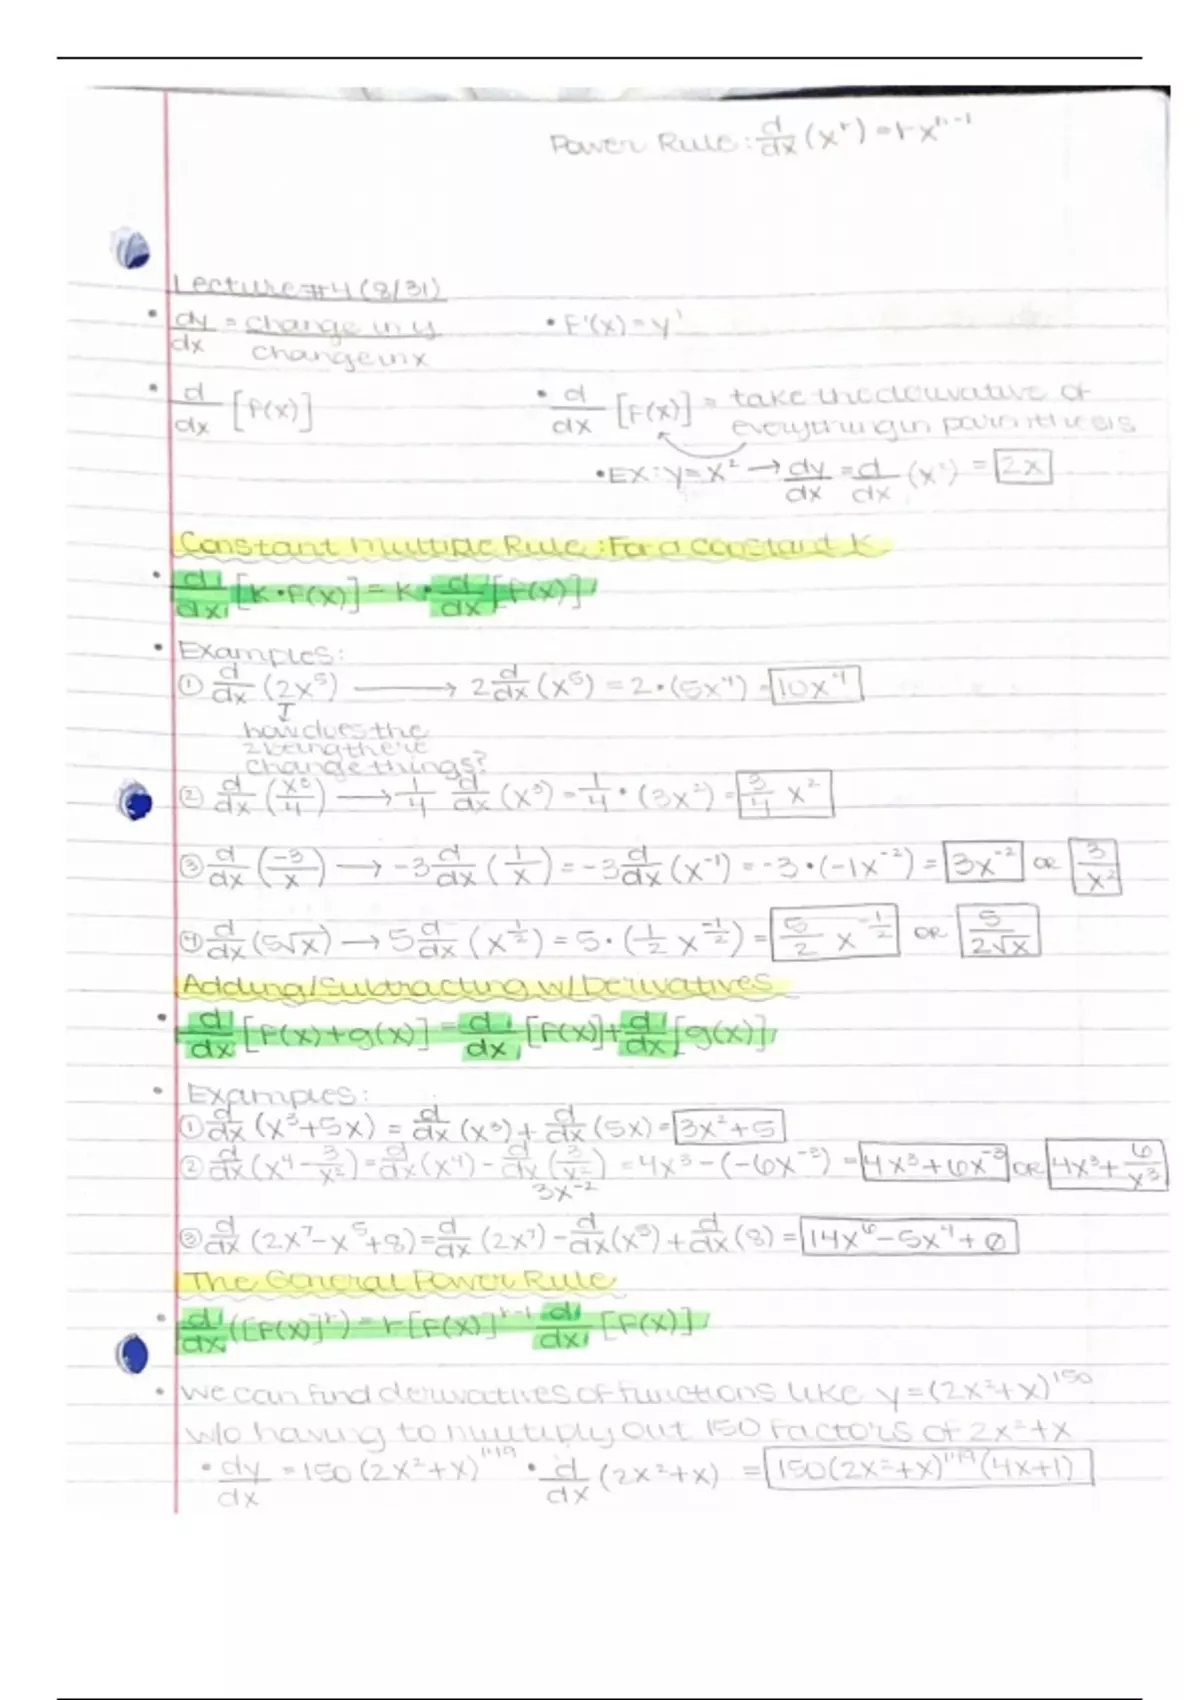 Power Rule: d/dx (x^r) = rx^(r-1)
Lecture #4 (8/31)
• dy/dx = change in y / change in x
• F'(x) = y'
• d/dx [F(x)]
• d/dx [F(x)] = take the derivative of
everything in parinthesis
• EX: y = x² → dy/dx = d/dx (x²) = 2x
Constant Multiple Rule: For a constant K
• d/dx [K • F(x)] = K • d/dx [F(x)]
• Examples:
① d/dx (2x⁵) → 2 d/dx (x⁵) = 2 • (5x⁴) = 10x⁴
how does the
2 being there
change things?
② d/dx (x³/4) → 1/4 d/dx (x³) = 1/4 • (3x²) = 3/4 x²
③ d/dx (-3/x) → -3 d/dx (1/x) = -3 d/dx (x⁻¹) = -3 • (-1x⁻²) = 3x⁻² OR 3/x²
④ d/dx (5√x) → 5 d/dx (x^(1/2)) = 5 • (1/2 x^(-1/2)) = 5/2 x^(-1/2) OR 5/(2√x)
Adding/Subtracting w/ Derivatives
• d/dx [F(x) + g(x)] = d/dx [F(x)] + d/dx [g(x)]
• Examples:
① d/dx (x³ + 5x) = d/dx (x³) + d/dx (5x) = 3x² + 5
② d/dx (x⁴ - 3/x²) = d/dx (x⁴) - d/dx (3/x²) = 4x³ - (-6x⁻³) = 4x³ + 6x⁻³ OR 4x³ + 6/x³
3x⁻²
③ d/dx (2x⁷ - x⁵ + 8) = d/dx (2x⁷) - d/dx (x⁵) + d/dx (8) = 14x⁶ - 5x⁴ + 0
The General Power Rule
• d/dx ([F(x)]^r) = r[F(x)]^(r-1) d/dx [F(x)]
• We can find derivatives of functions like y = (2x² + x)¹⁵⁰
w/o having to multiply out 150 factors of 2x² + x
• dy/dx = 150 (2x² + x)¹⁴⁹ • d/dx (2x² + x) = 150(2x² + x)¹⁴⁹ (4x + 1)